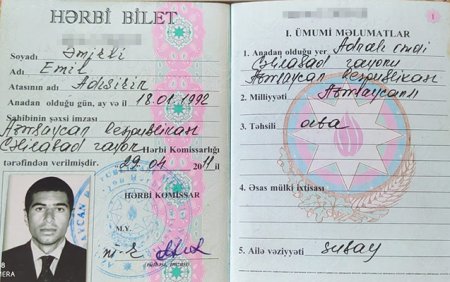 HƏRBİ BİLET
Soyadı Əmirli
Adı Emil
Atasının adı
Anadan olduğu gün, ay və il 18.01.1992
Sahibinin şəxsi imzası
Azərbaycan Respublikası
Cəlilabad rayon Hərbi Komissarlığı
tərəfindən verilmişdir. 29 04 2011 il
HƏRBİ KOMİSSAR
M.Y.
MERA
1
I. ÜMUMİ MƏLUMATLAR
1. Anadan olduğu yer
Cəlilabad rayonu
Azərbaycan Respublikası
2. Milliyyəti Azərbaycanlı
3. Təhsili orta
4. Əsas mülki ixtisası
5. Ailə vəziyyəti subay